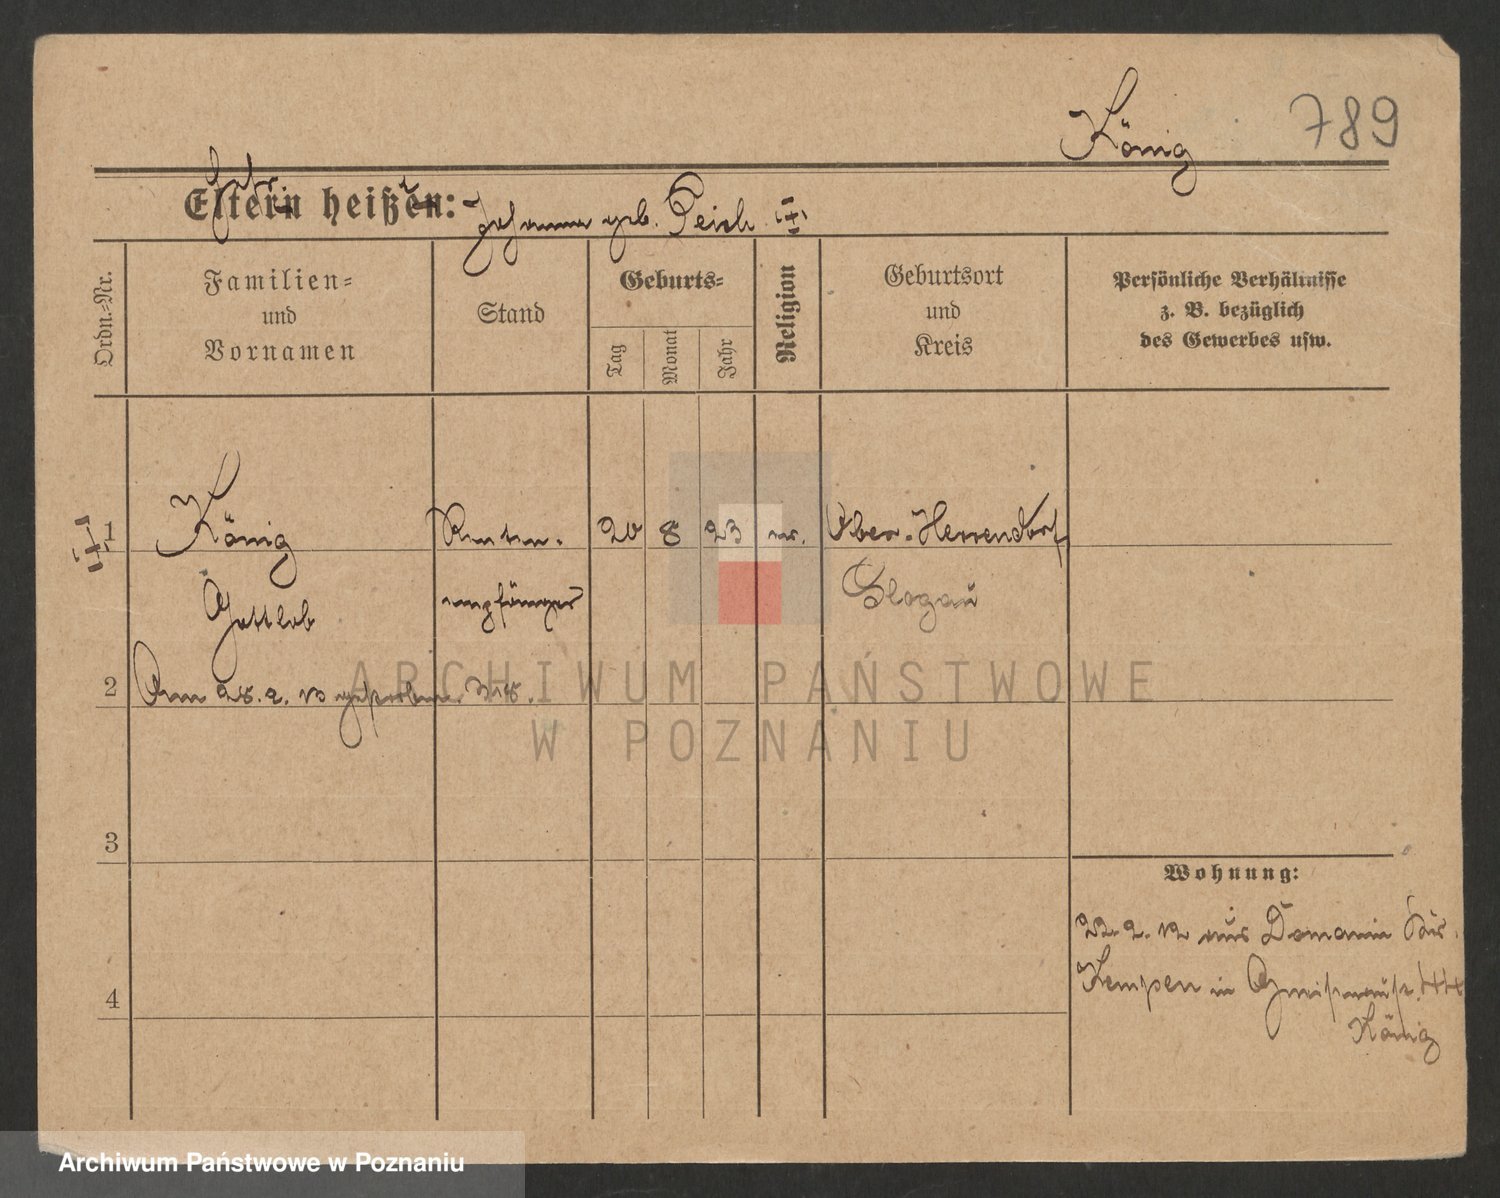 König 789
Eltern heißen: Johanna geb. Peich
Ordn.-Nr.
Familien-
und
Vornamen
Stand
Geburts-
Tag
Monat
Jahr
Religion
Geburtsort
und
Kreis
Persönliche Verhältnisse
z. B. bezüglich
des Gewerbes usw.
1 König Renten- 20 8 23 ev. Ober-Herrendorf
Gottlob empfänger Glogau
2 Am 28.2.13 gestorben
3
4
Wohnung:
22.2.12 aus Domanin Kr.
Kempen in
König
ARCHIWUM PAŃSTWOWE
W POZNANIU
Archiwum Państwowe w Poznaniu